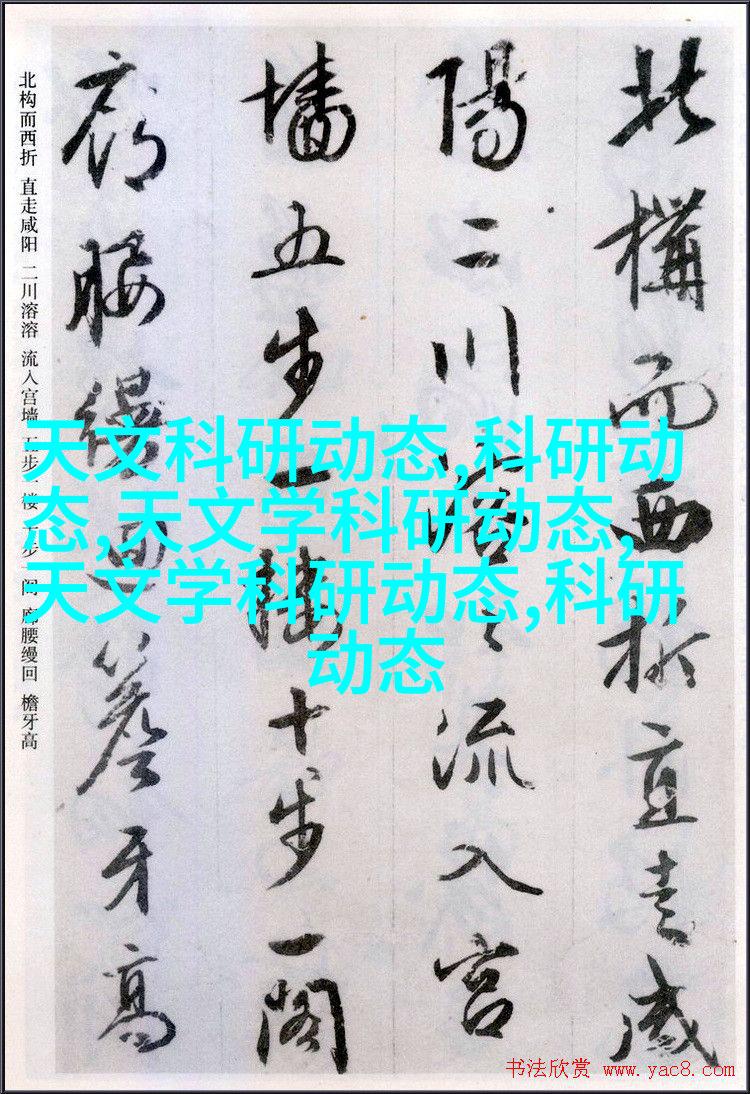 北構而西折直走咸
陽二川溶〻流入宮
墻五步一樓十步一閣
廊腰縵迴簷牙高
北构而西折 直走咸阳 二川溶溶 流入宫墙 五步一楼 十步一阁 廊腰缦回 檐牙高
天文科研动态,科研动
态,天文学科研动态,
天文学科研动态,科研
动态
书法欣赏 www.yac8.com